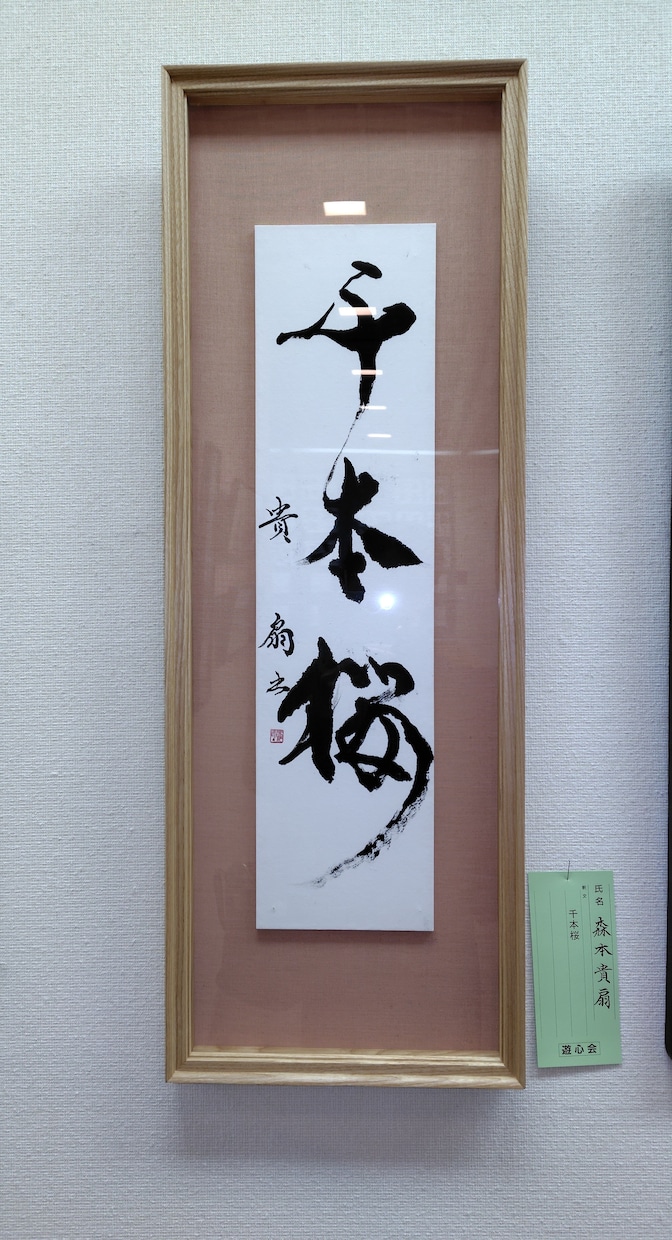 千本桜
貴扇书
氏名 森本貴扇
釈文 千本桜
遊心会